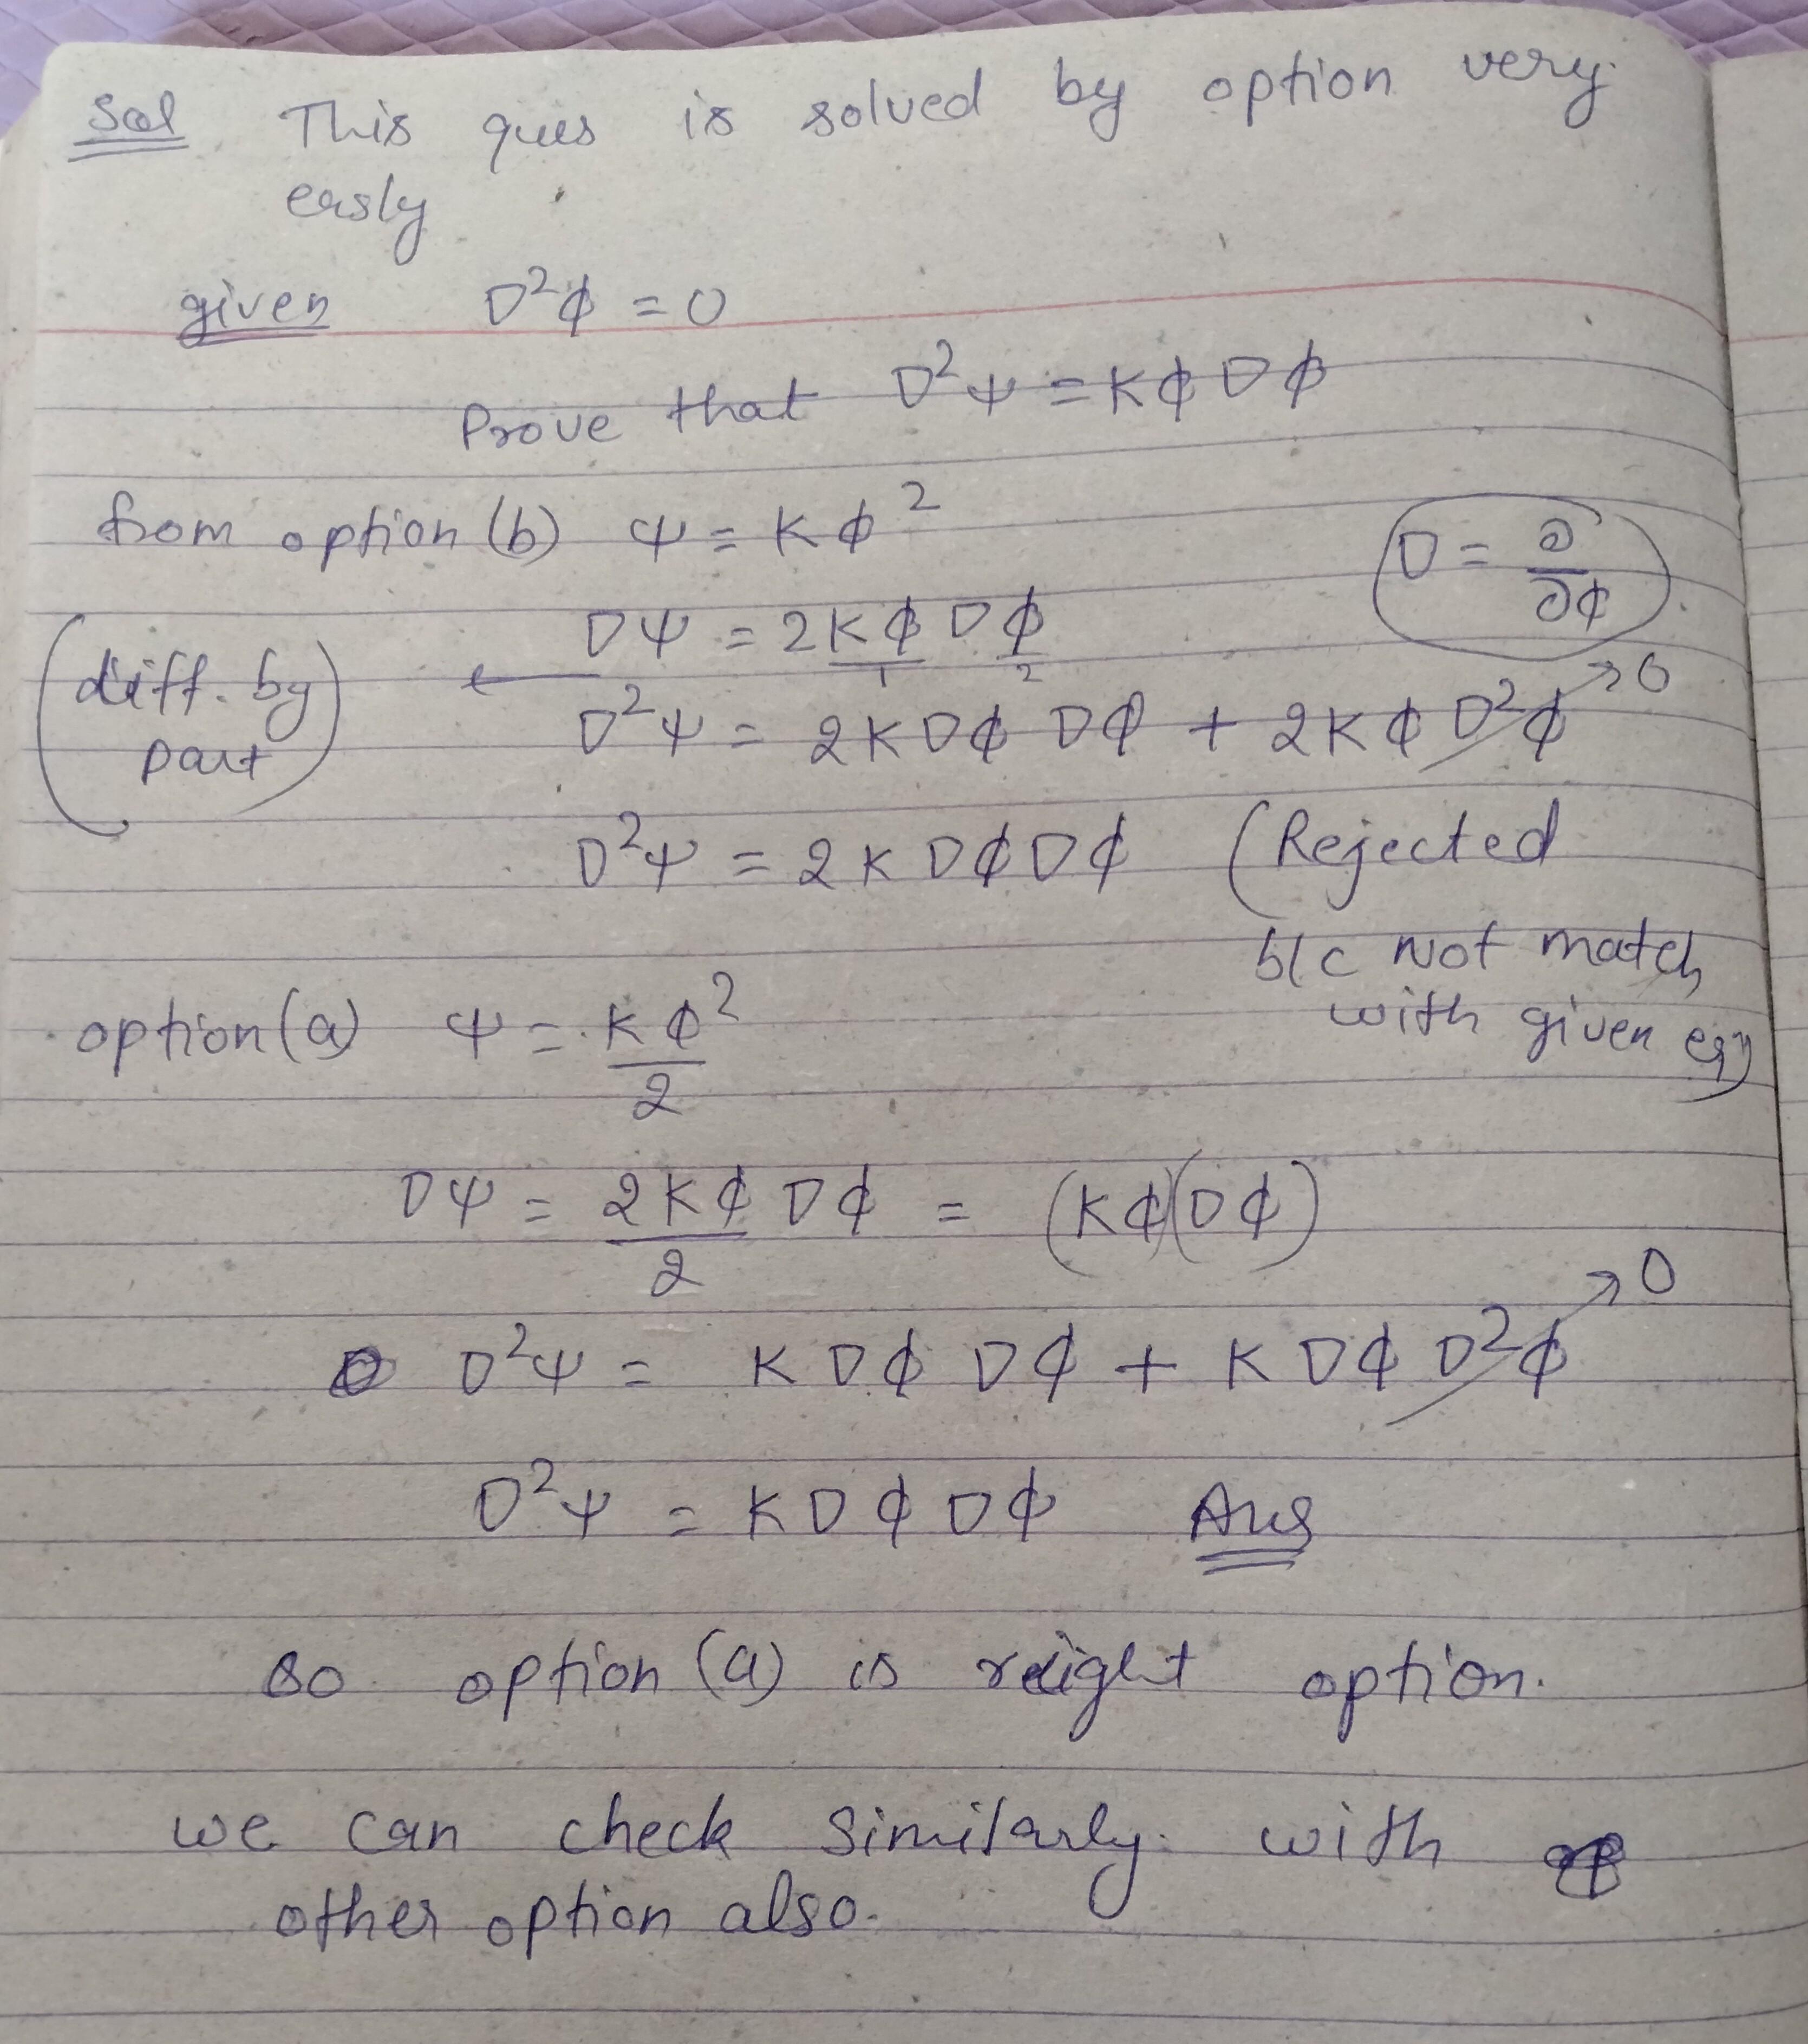 Sol This ques is solved by option very
easly
given ∇²ϕ = 0
Prove that ∇²ψ = Kϕ∇ϕ
from option (b) ψ = Kϕ²
∇ = ∂/∂ϕ
∇ψ = 2Kϕ ∇ϕ
1 2
(diff. by part) ← ∇²ψ = 2K∇ϕ ∇ϕ + 2Kϕ ∇²ϕ → 0
∇²ψ = 2K ∇ϕ∇ϕ (Rejected
b/c not match
with given eqⁿ)
option (a) ψ = Kϕ²/2
∇ψ = 2Kϕ/2 ∇ϕ = (Kϕ)(∇ϕ)
∇²ψ = K∇ϕ ∇ϕ + K∇ϕ ∇²ϕ → 0
∇²ψ = K∇ϕ∇ϕ Ans
so option (a) is right option.
we can check similarly with
other option also.